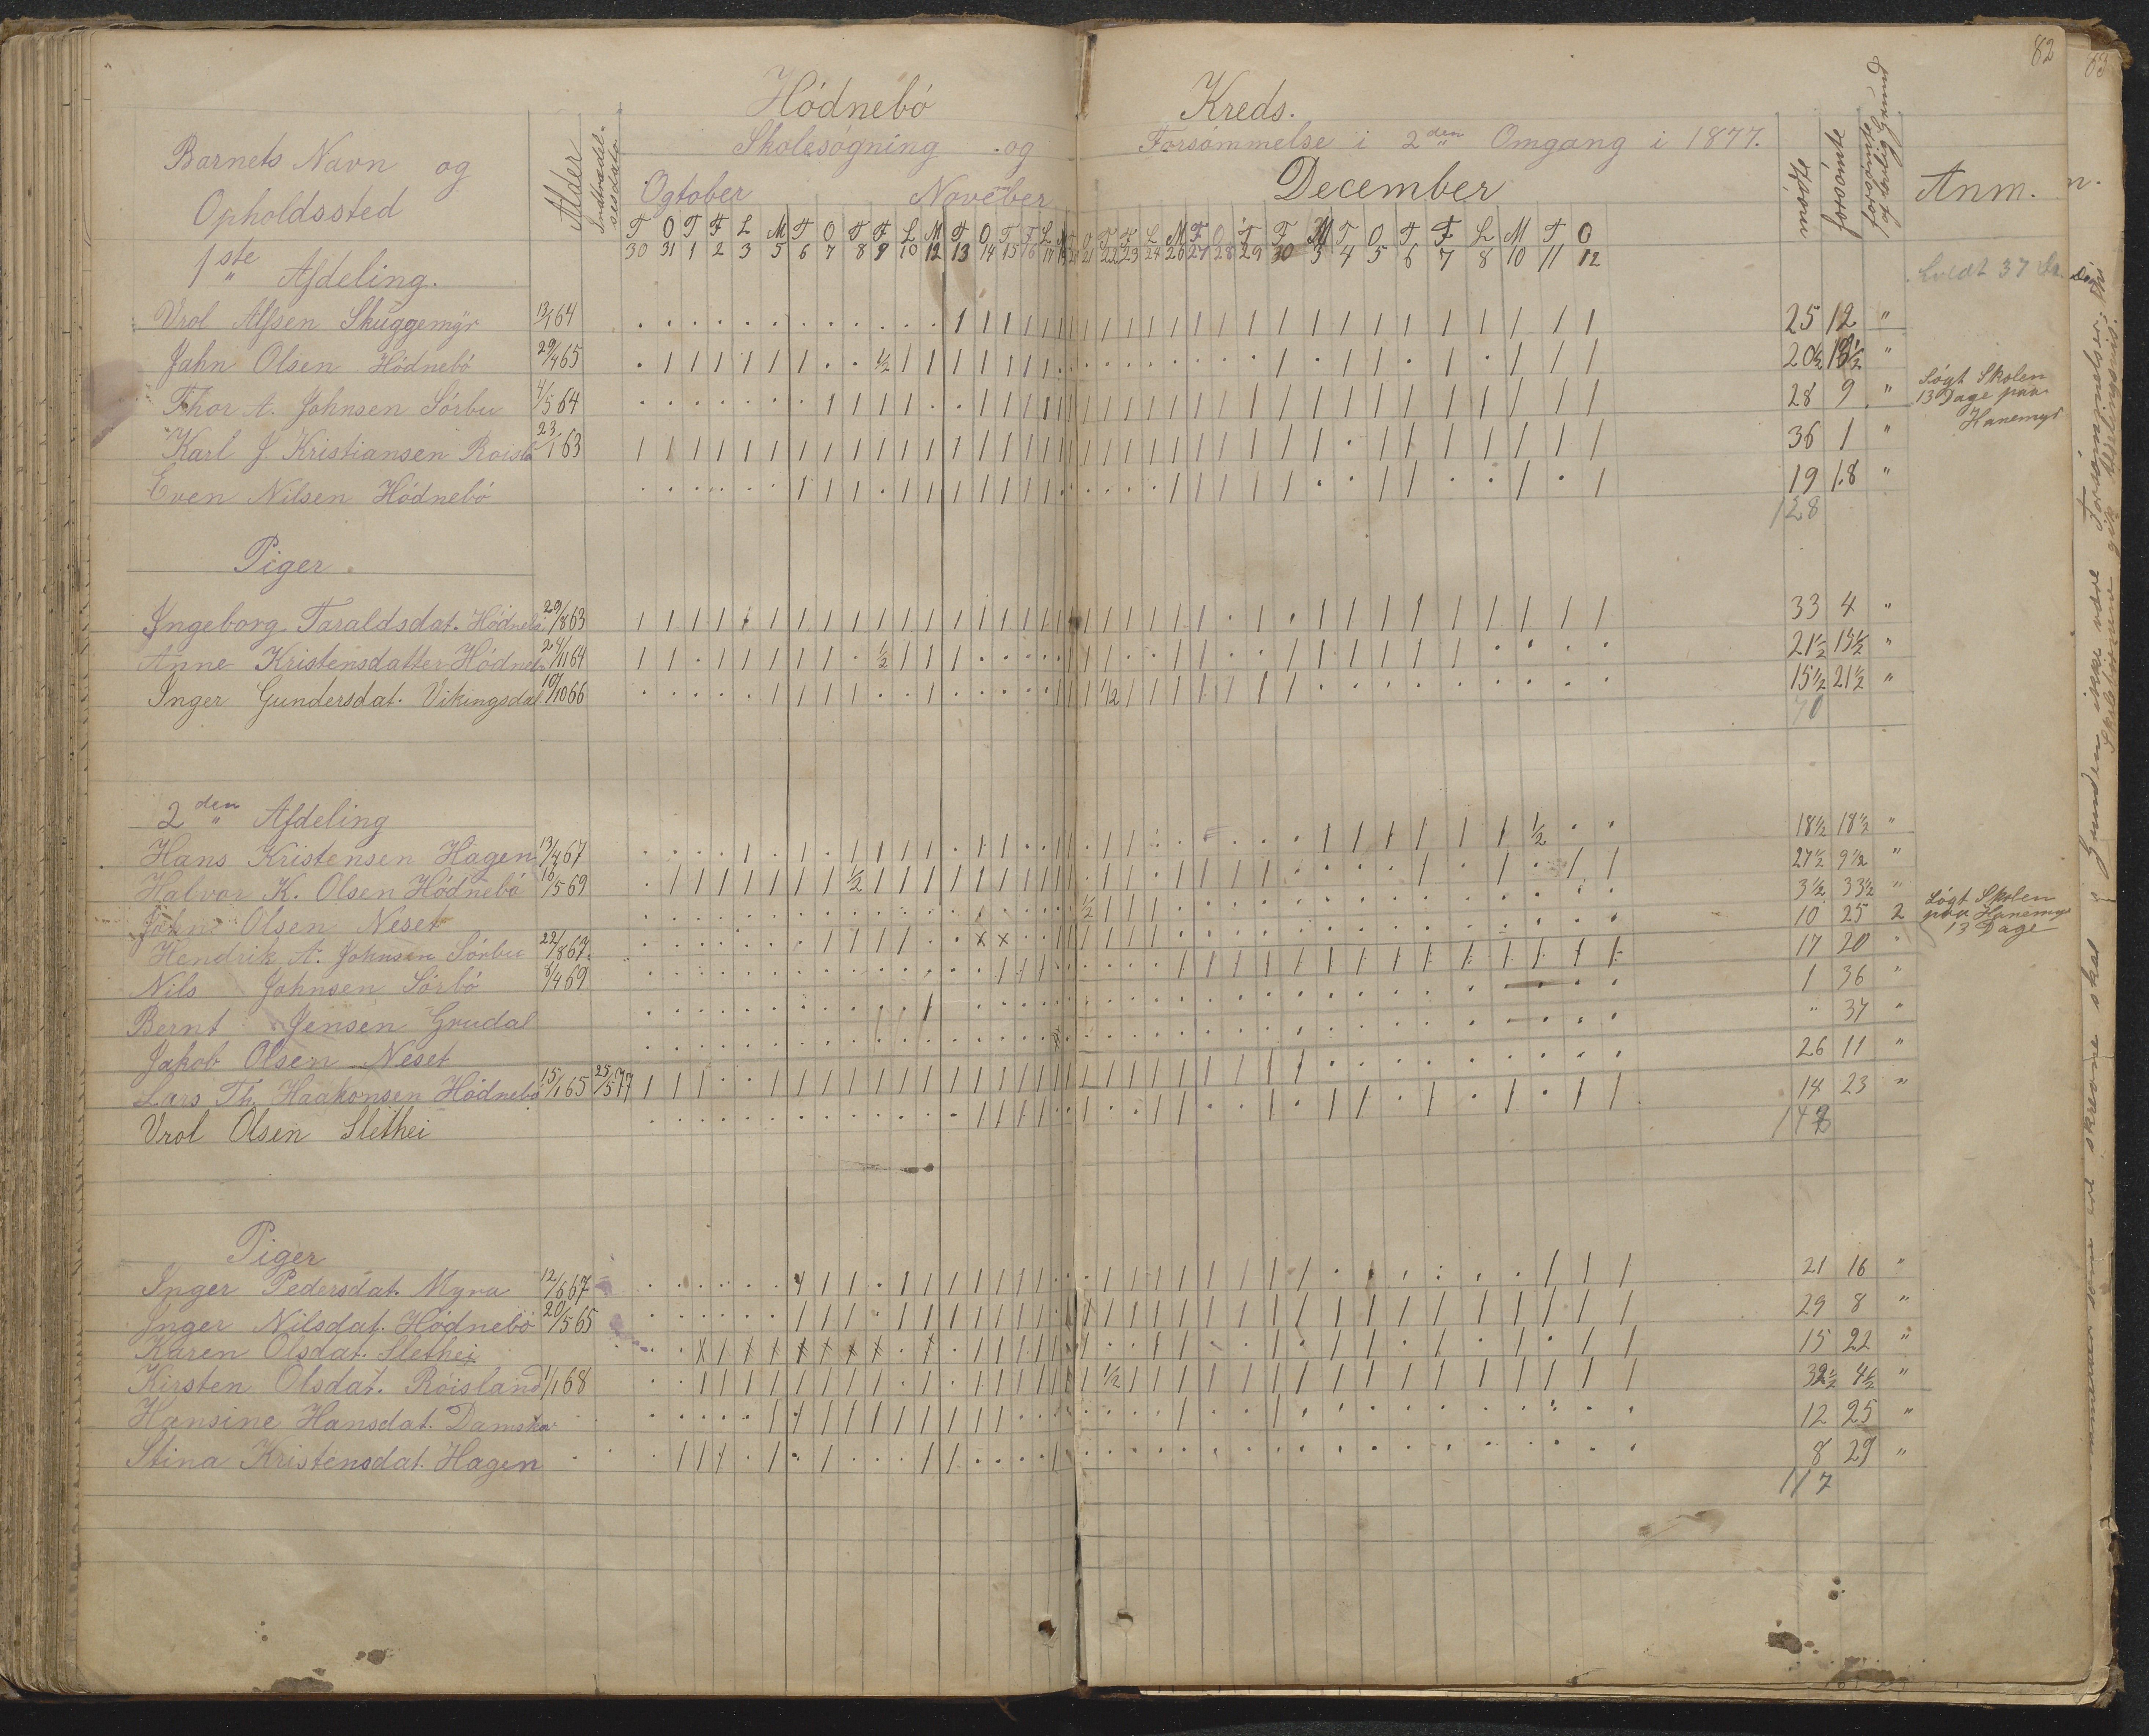 82 83
Hódnebó Kreds.
Skolesógning og Forsómmelse i 2den Omgang i 1877.
Barnets Navn og Opholdssted
Alder
Indtrædelsesdato
Ogtober November December
mødte forsómte forsómte af lovlig Grund Anm.
T O T F L M T O T F L M T O T F L M T O T F L M T O T F M T O T F L M T O
30 31 1 2 3 5 6 7 8 9 10 12 13 14 15 16 17 19 20 21 22 23 24 26 27 28 29 30 3 4 5 6 7 8 10 11 12
1ste Afdeling.
holdt 37 D.
Vrol Alfsen Skuggemyr 13/1 64 25 12 "
Jahn Olsen Hódnebó 29/4 65 20½ 16½ "
Thor A. Johnsen Sórbu 4/5 64 28 9 " Sógt Skolen 13 Dage paa Hanemyr
Karl J. Kristiansen Roisla 23/1 63 36 1 "
Even Nilsen Hódnebó 19 18 "
128
Piger
Ingeborg Taraldsdat. Hódnebó 29/8 63 33 4 "
Anne Kristensdatter Hódneb 24/11 64 21½ 15½ "
Inger Gundersdat. Vikingsdal 10/10 66 15½ 21½ "
70
2den Afdeling
Hans Kristensen Hagen 13/4 67 18½ 18½ "
Halvor K. Olsen Hódnebó 16/5 69 27½ 9½ "
John Olsen Neset 3½ 33½ "
Hendrik A. Johnsen Sórbu 22/8 67. 10 25 2 Sógt Skolen paa Hanemyr 13 Dage
Nils Johnsen Sórbó 8/4 69 17 20 "
Bernt Jensen Grudal 1 36 "
Jakob Olsen Neset " 37 "
Lars Th. Haakonsen Hódnebó 15/1 65 25/5 77 26 11 "
Vrol Olsen Slethei 14 23 "
Piger
Inger Pedersdat. Myra 12/6 67 21 16 "
Inger Nilsdat. Hódnebó 20/5 65 29 8 "
Karen Olsdat. Slethei 15 22 "
Kirsten Olsdat. Roisland 1/1 68 32½ 4½ "
Hansine Hansdat. Damskar 12 25 "
Stina Kristensdat. Hagen 8 29 "
117